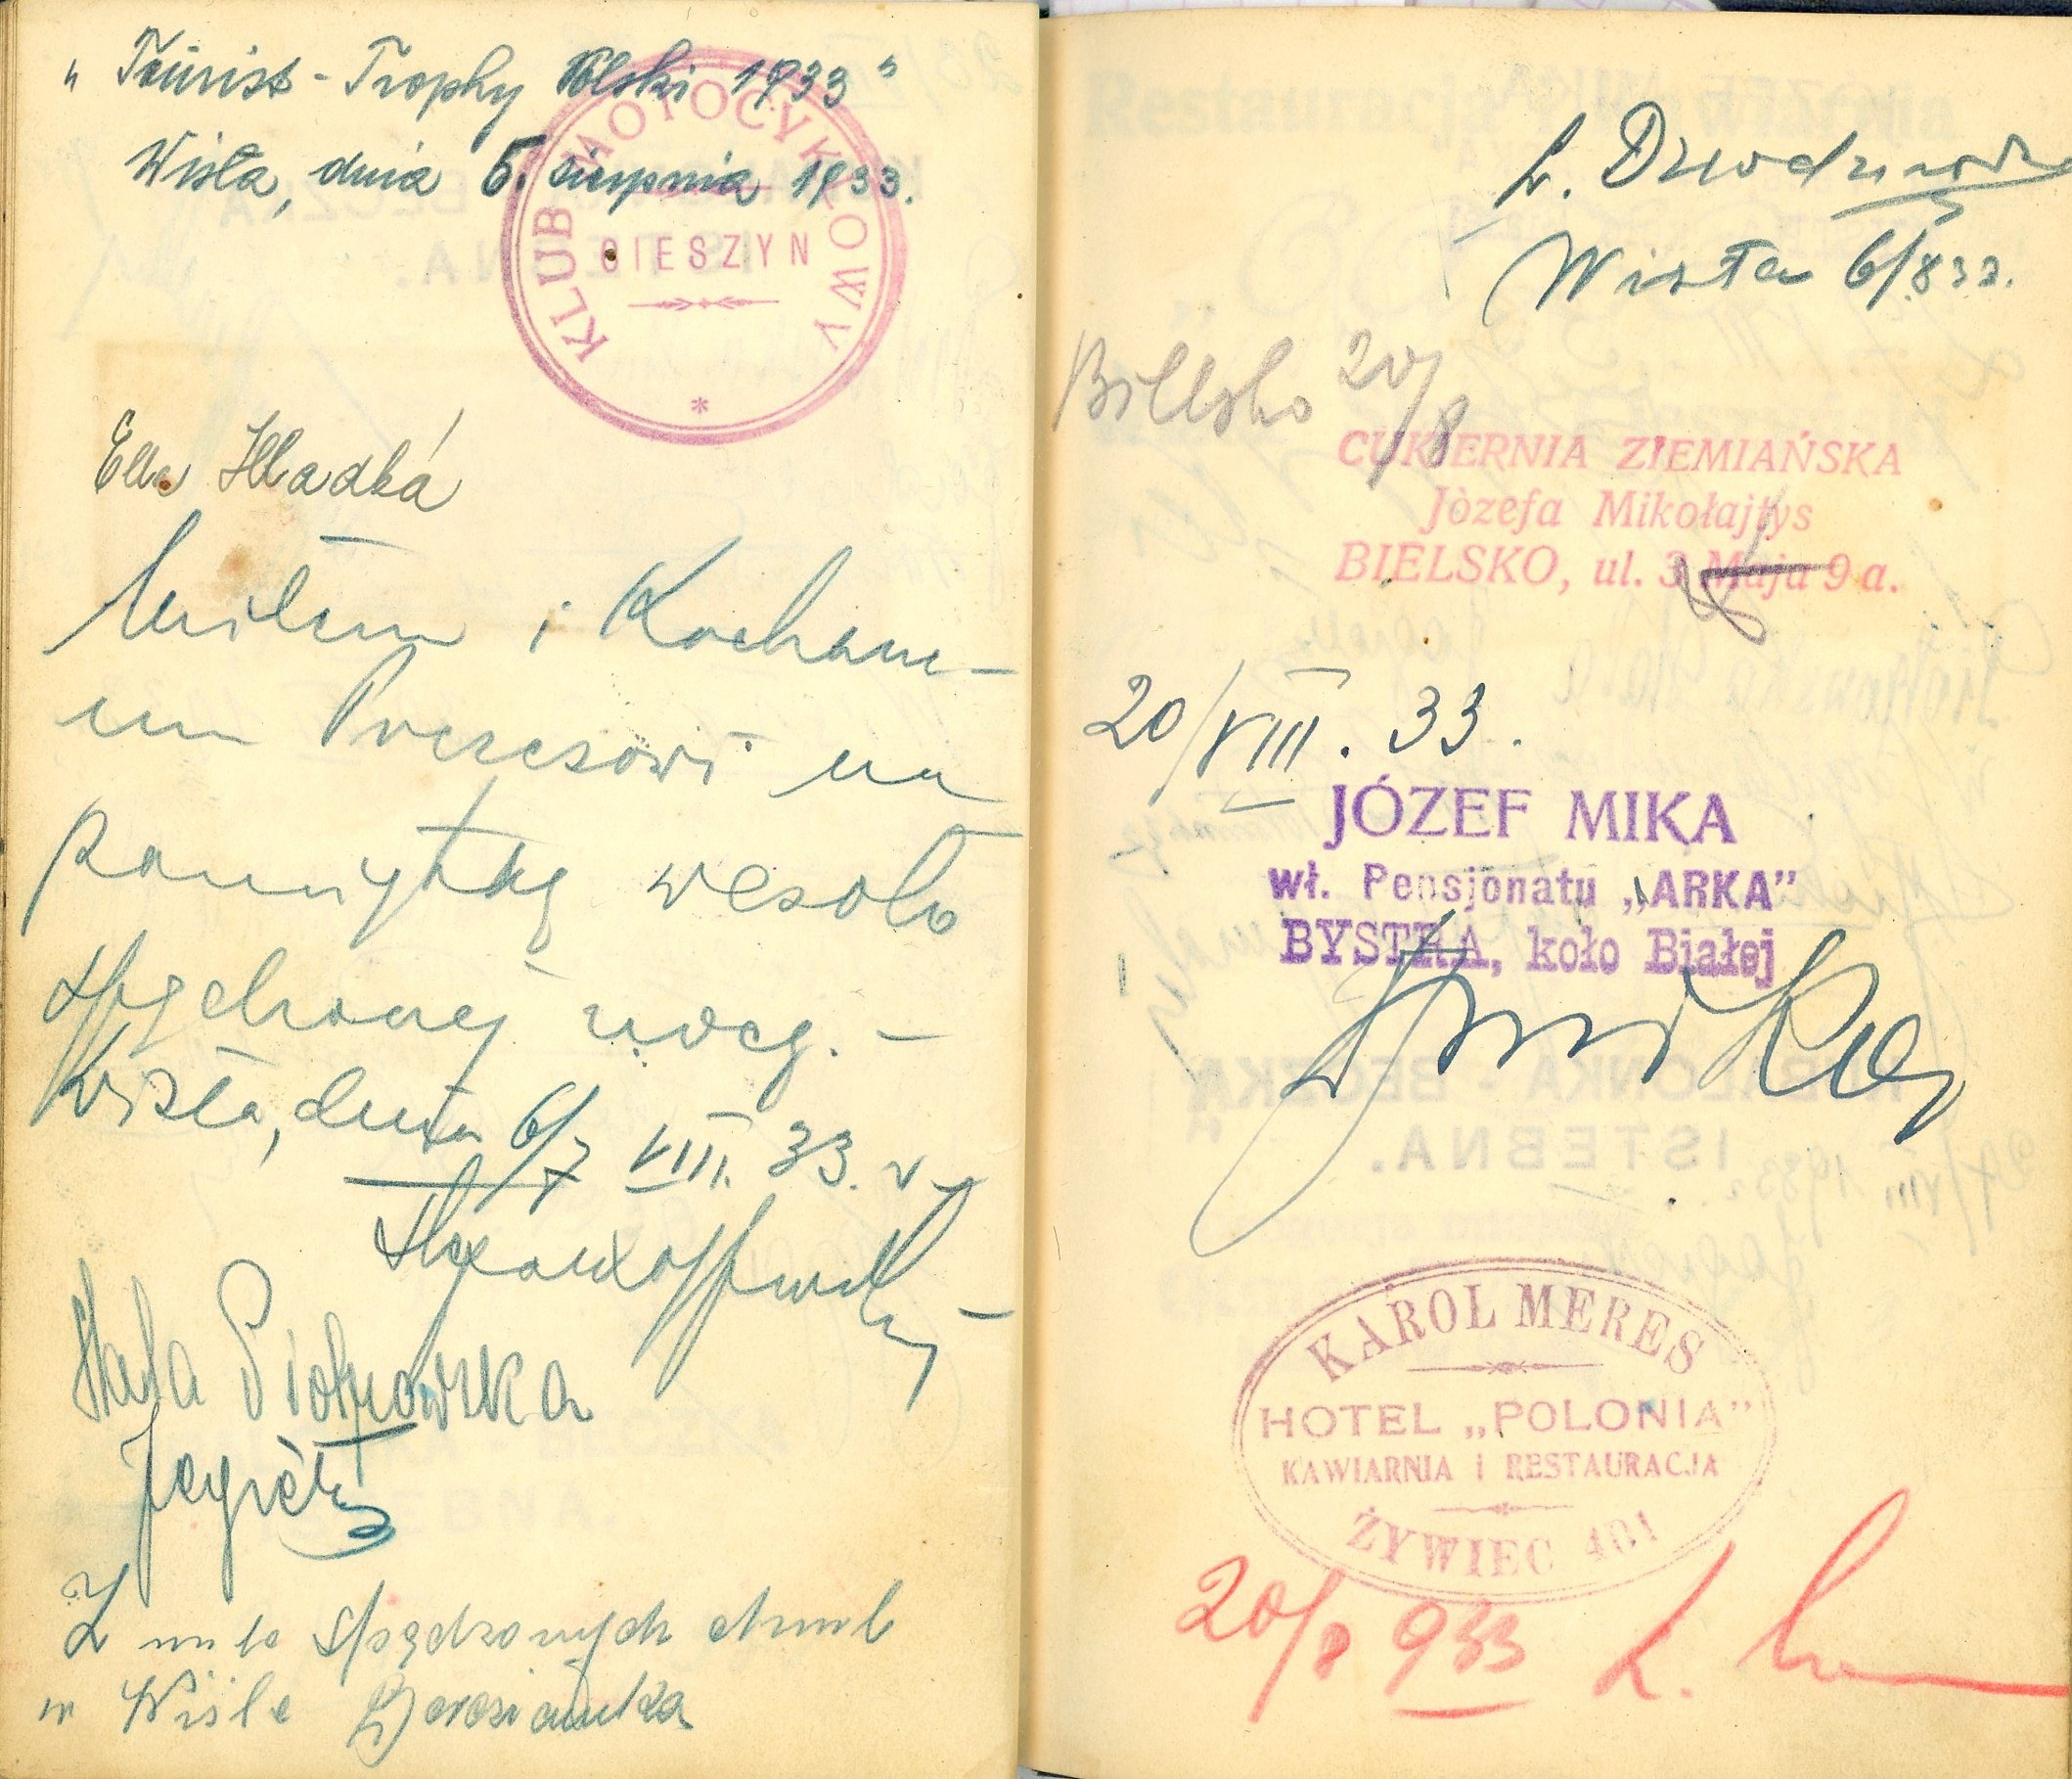 „Tourist-Trophy Polski 1933”
Wisła, dnia 5. sierpnia 1933.
KLUB MOTOCYKLOWY
CIESZYN
Ella Hladká
Miłemu i Kochane-
mu Prezesowi na
pamiątkę wesoło
spędzonej nocy. –
Wisła, dnia 6/7 VIII. 33. r.
Hala Piotrowska
Z miło spędzonych chwil
w Wiśle
Wisła 6/8 33.
Bielsko 20/8
CUKIERNIA ZIEMIAŃSKA
Józefa Mikołajtys
BIELSKO, ul. 3 Maja 9 a.
20/VIII. 33.
JÓZEF MIKA
wł. Pensjonatu „ARKA”
BYSTRA, koło Białej
JMika
KAROL MERES
HOTEL „POLONIA”
KAWIARNIA i RESTAURACJA
ŻYWIEC 401
20/8 933